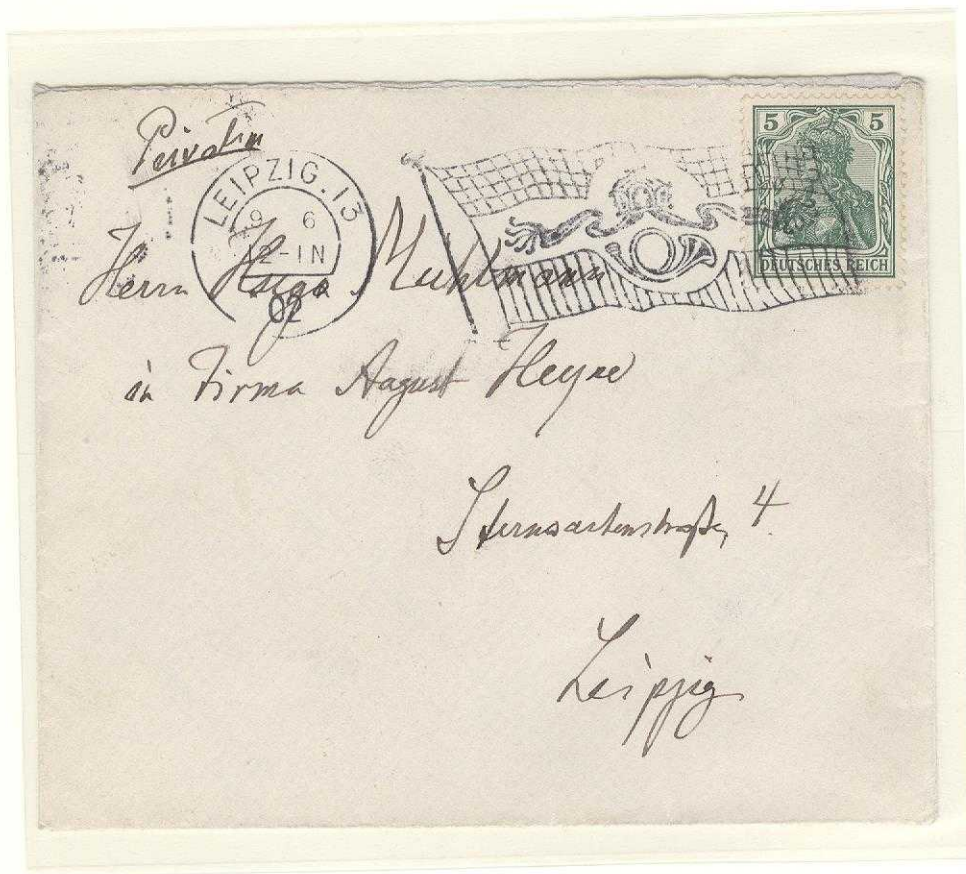 Privatim
LEIPZIG. 13
9 6
12-1N
02
5 5
DEUTSCHES REICH
Herrn Hugo Muhlmann
in Firma August Heyne
Sternwartenstraße, 4.
Leipzig